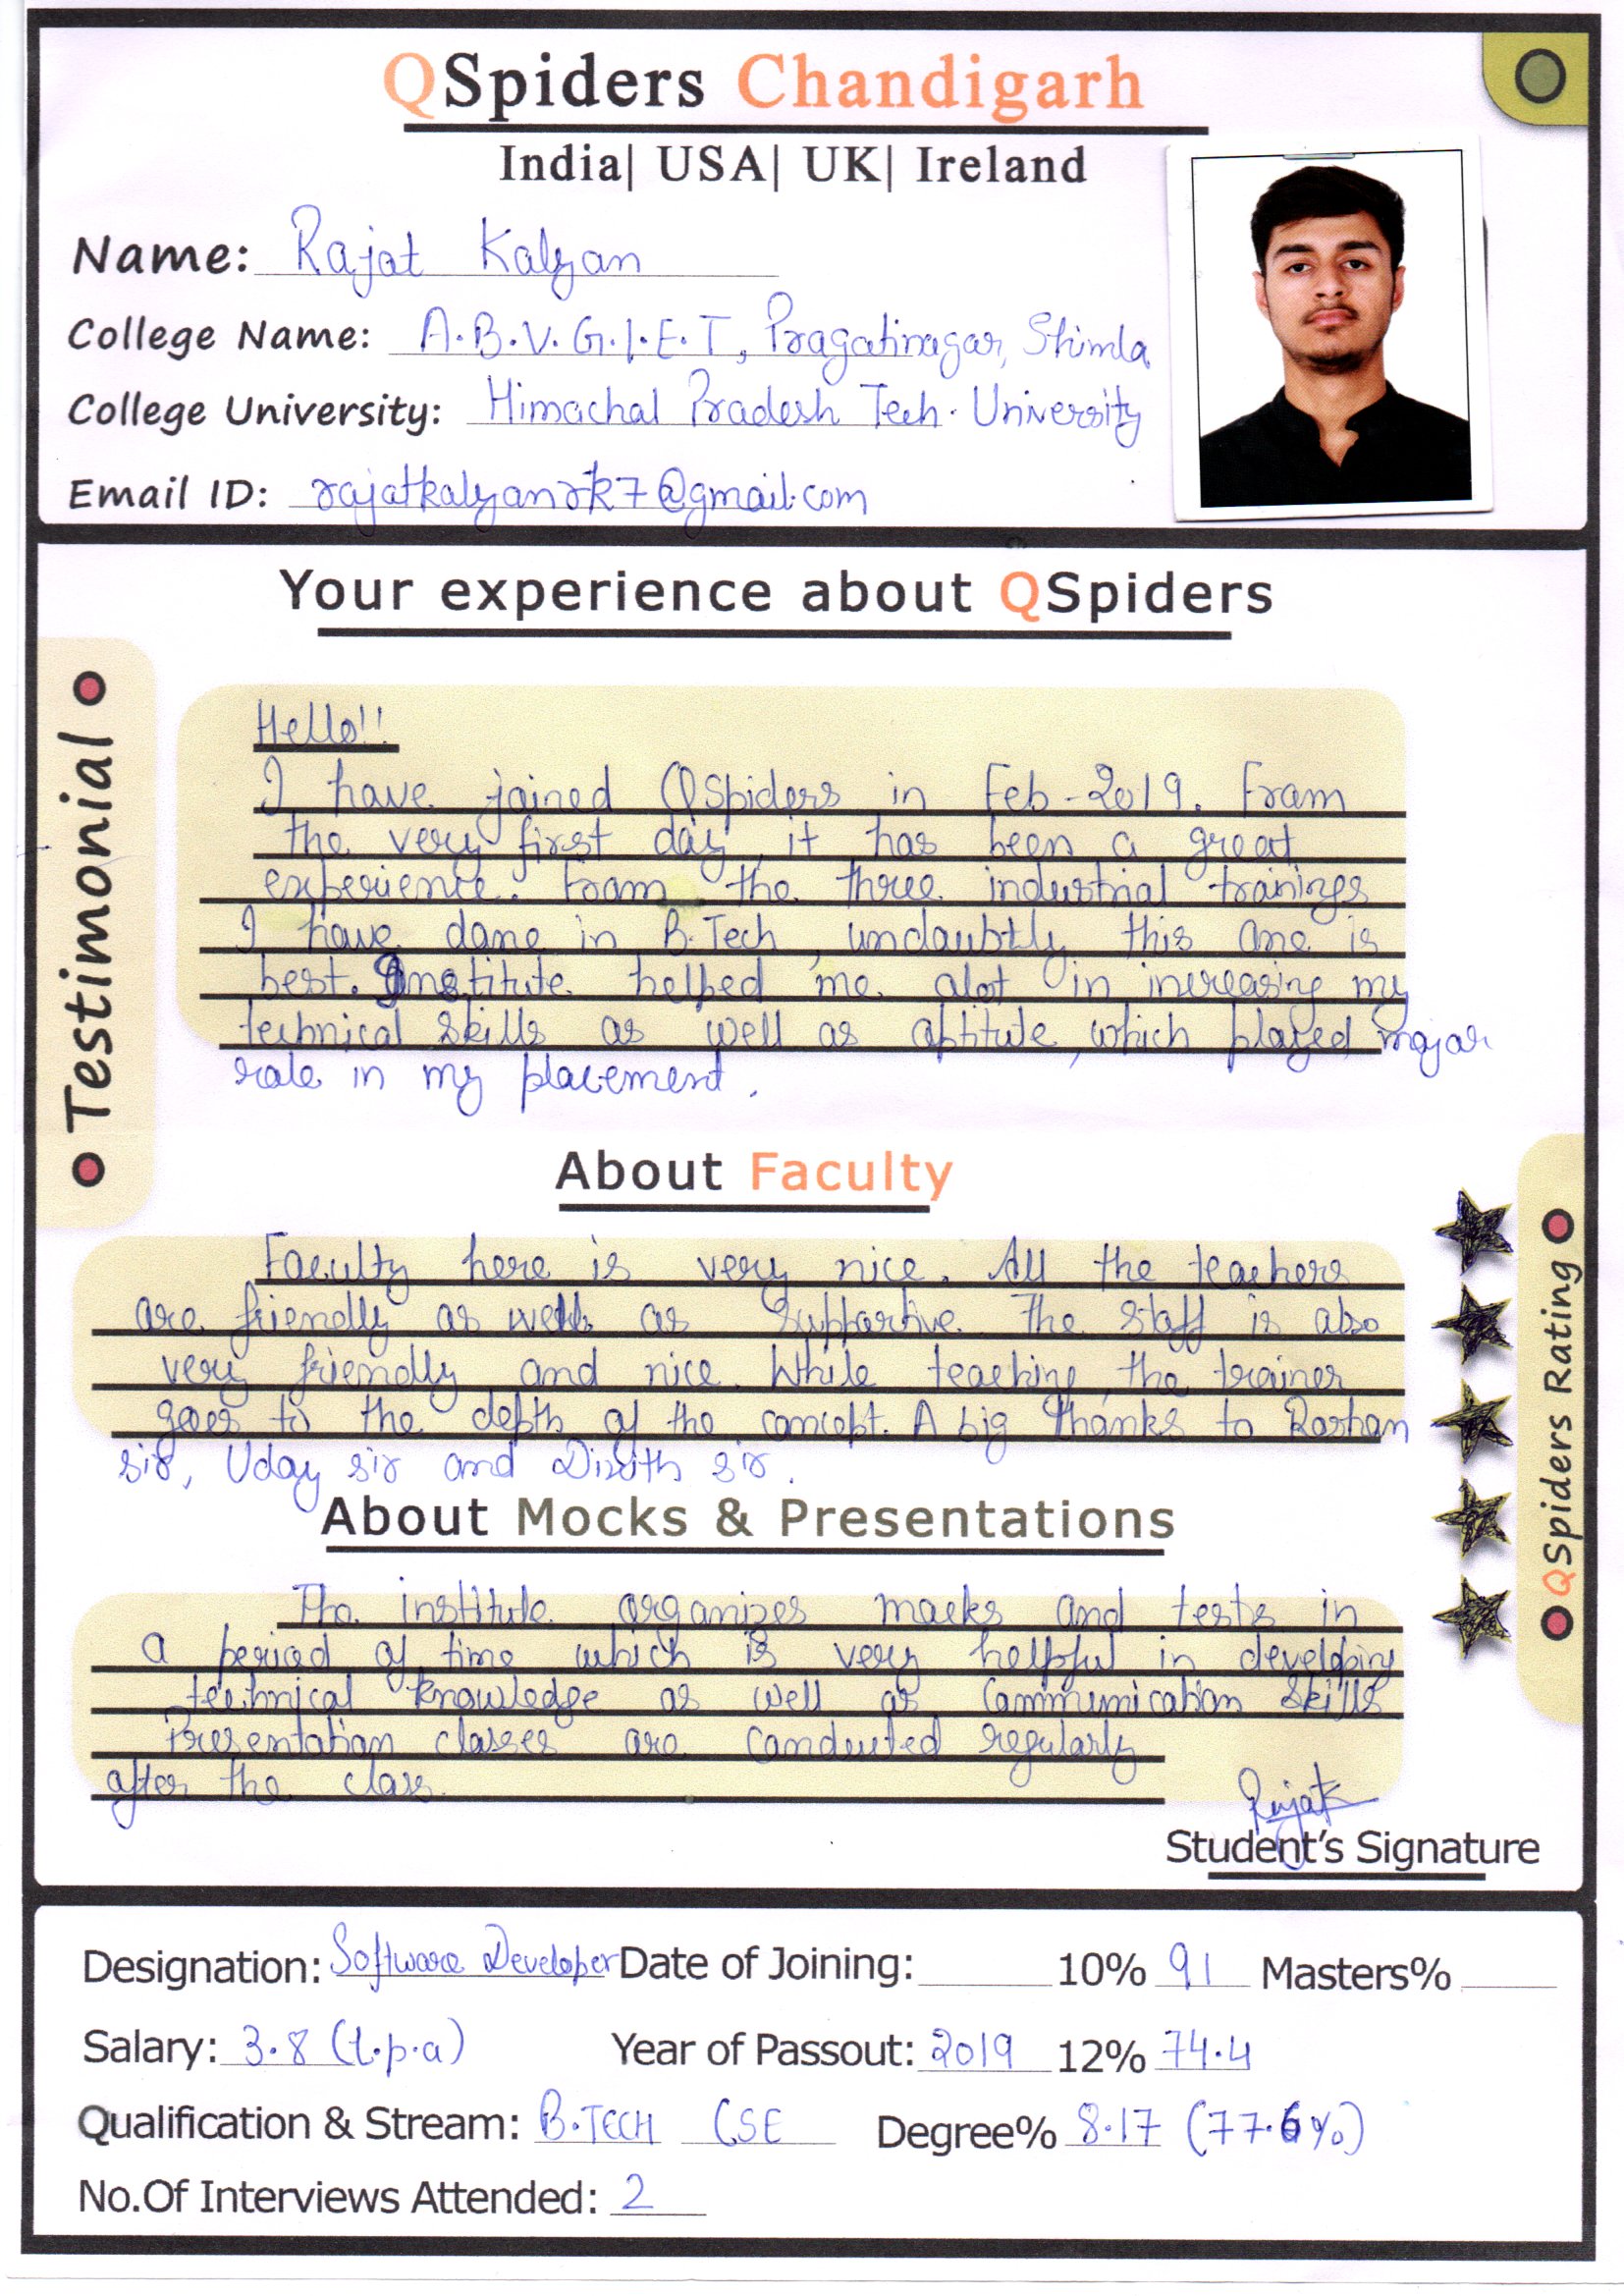 QSpiders Chandigarh
India| USA| UK| Ireland
Name: Rajat Kalyan
College Name: A.B.V.G.I.E.T, Pragatinagar, Shimla
College University: Himachal Pradesh Tech. University
Email ID: rajatkalyanrk7@gmail.com
Your experience about QSpiders
Testimonial
Hello!!
I have joined QSpiders in Feb-2019. From
the very first day, it has been a great
experience. From the three industrial trainings
I have done in B.Tech, undoubtly this one is
best. Institute helped me alot in increasing my
technical skills as well as aptitute, which played major
role in my placement.
About Faculty
Faculty here is very nice. All the teachers
are friendly as well as supportive. The staff is also
very friendly and nice. While teaching, the trainer
goes to the depth of the concept. A big thanks to Roshan
sir, Uday sir and Dixith sir.
QSpiders Rating
About Mocks & Presentations
The institute organizes mocks and tests in
a period of time which is very helpful in developing
technical knowledge as well as communication skills
Presentation classes are conducted regularly
after the class.
Rajat
Student's Signature
Designation: Software Developer Date of Joining: 10% 91 Masters%
Salary: 3.8 (l.p.a) Year of Passout: 2019 12% 74.4
Qualification & Stream: B.TECH CSE Degree% 8.17 (77.6%)
No.Of Interviews Attended: 2